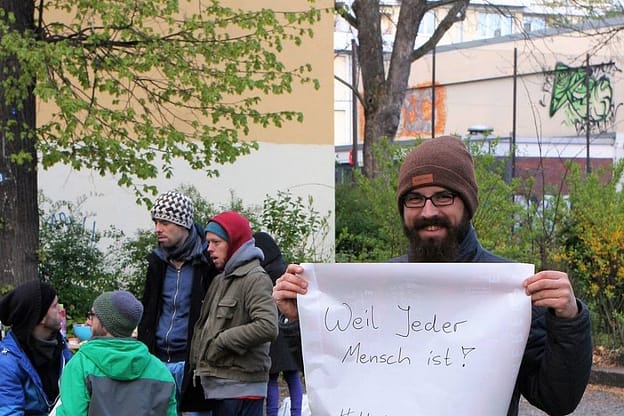 Weil Jeder
Mensch ist!